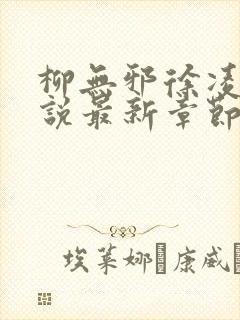 柳無邪徐凌
說最新章節
埃萊娜·康威